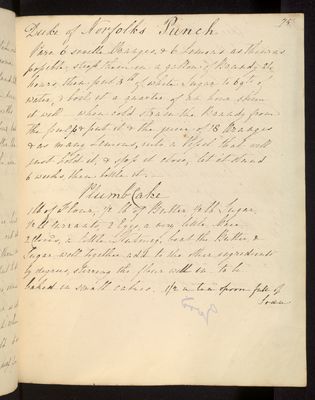 Duke of Norfolks Punch
75
Pare 6 Seville Oranges, & 6 Lemons as thin as
possible, steep them in a gallon of Brandy 24
hours, then put 3 lb of white Sugar to 6 qts of
water, & boil it a quarter of an hour, skim
it well when cold strain the Brandy from
the peel & put it & the juice of 18 Oranges
& as many Lemons, into a Vessel that will
just hold it, & stop it close, let it stand
6 weeks, then bottle it.
Plumb Cake
1 lb of Flour, 1/2 lb of Butter 1/2 lb Sugar
1/2 lb Currants, 2 Eggs, a very little Mace
2 Cloves, a little Nutmeg, beat the Butter, &
Sugar well together add to the other ingredients
by degrees, stirring the flour well in. to be
baked in small cakes. 1/2 a tea spoon full of
Soda